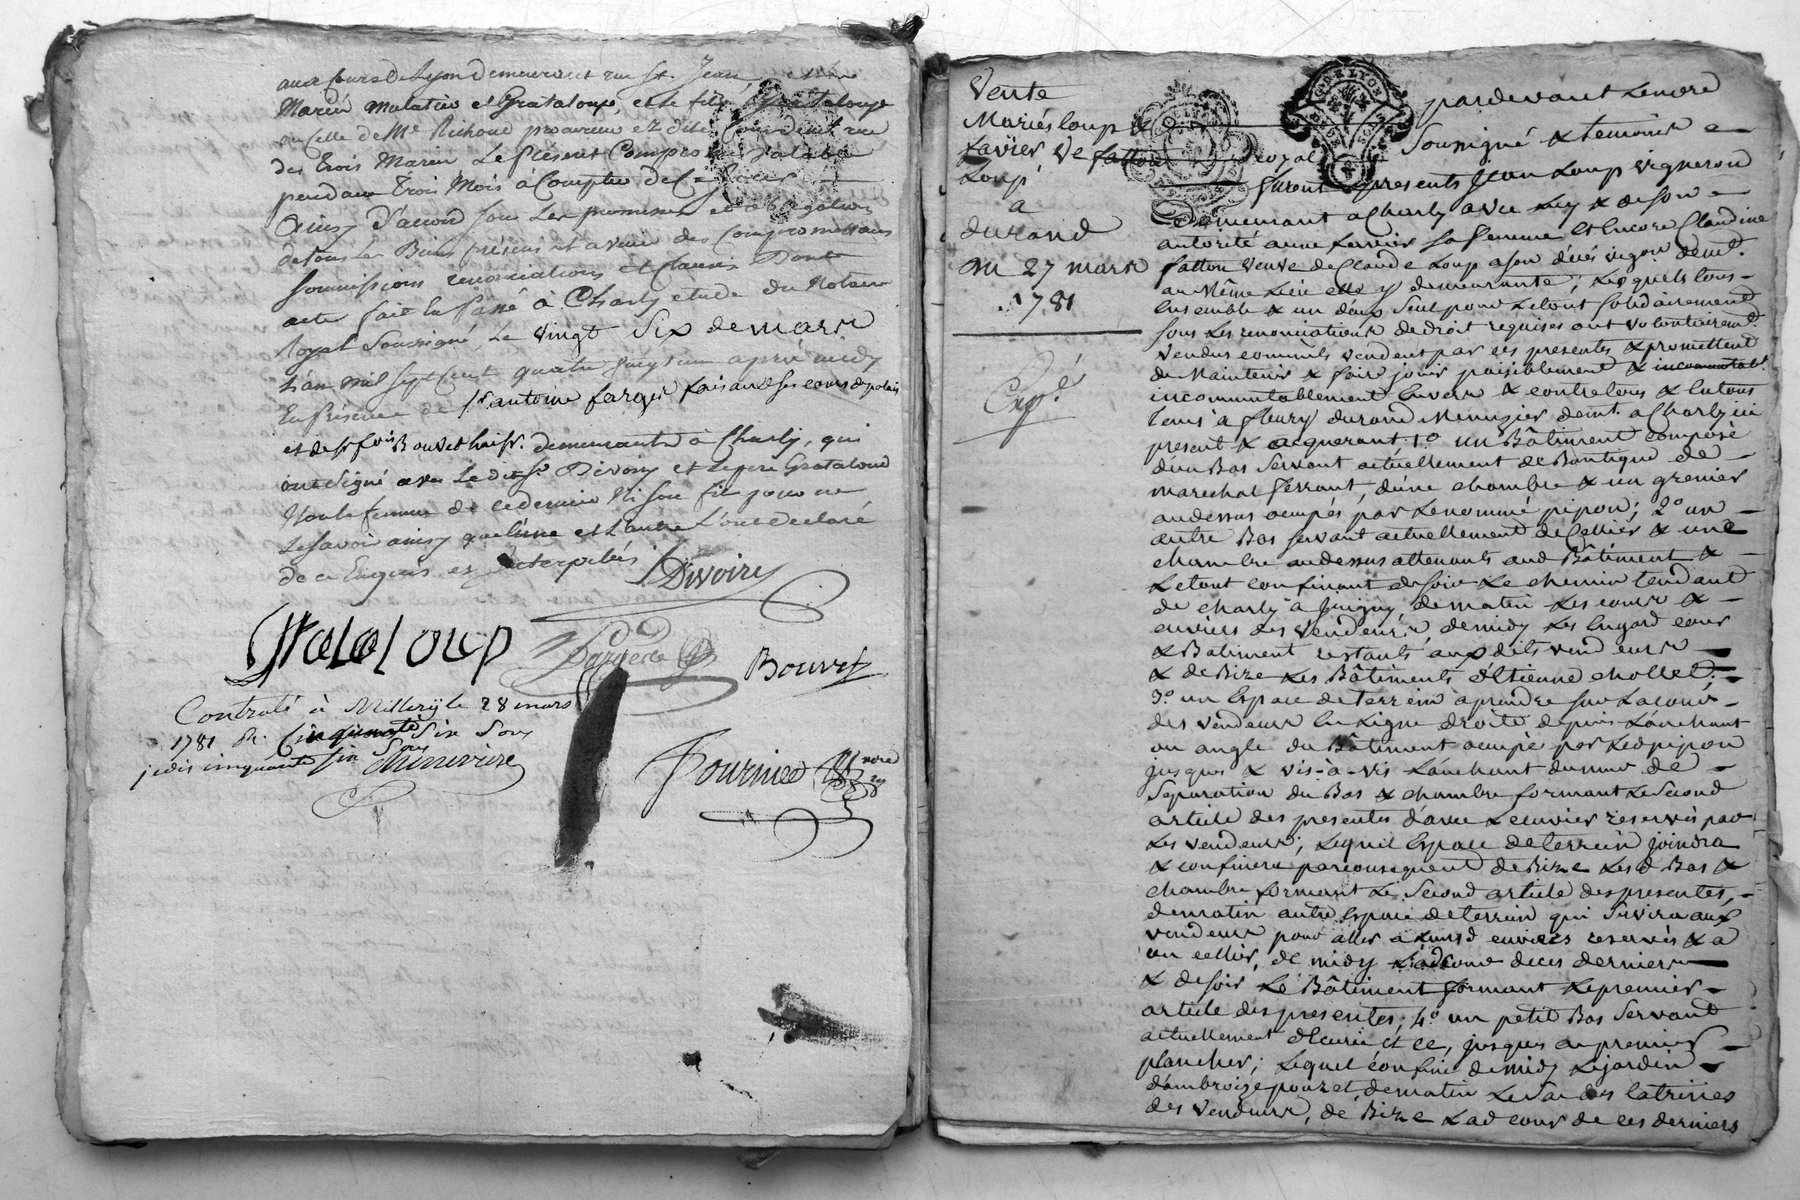 aux Cours de Lyon demeurant rue St. Jean,
Mariés mulatier et Grataloup, et le fils Grataloup
en celle de Me Richoud procureur ez dites Cours demt. rue
des trois Maries Le présent Compromis valable
pendant trois Mois à Compter de Ce jour
Ainsy d'accord sous les promesses et obligations
de tous les Biens présens et avenir des Compromettans
soumissions renonciations et clauses Dont
acte fait Lu passé à Charly etude du Notaire
Royal Soussigné, Le vingt Six de mars
L'an mil Sept Cent quatre vingt un après midy
En présence de Sr. antoine farges faisant ses cours de palais
et de Sr. fois Bouvet huissr. demeurants à Charly, qui
ont signé avec Le dit Sr. Divoiry et le pere Grataloup
Non la femme de ce dernier Ni son fils pour ne
Le Savoir ainsy que l'une et l'autre L'ont déclaré
de ce Enquis et interpelés
Divoiry
Grataloup
Farges
Bouvet
Controlé à Millery le 28 mars
1781 R. Cinquante Six Sous
je dis cinquante six Sous
Fournier Nre
Vente
Mariés loup &
favier, Ve fatton
Loup
a
durand
du 27 mars
1781
Exp.é
pardevant Lenore
Royal Soussigné & temoins
furent presents Jean Loup vigneron
demeurant a Charly avec luy & de son
autorité anne favier sa femme et Encore Claudine
fatton veuve de Claude Loup a son décés vigon demt.
au Même Lieu elle y demeurante; Lesquels tous
Ensemble & un deux seul pour Letout solidairement
sous Les renonciations de droit requises ont volontairemt.
vendus comm'ils vendent par ces presentes & promettent
de Maintenir & faire jouir paisiblement & incommutabl.
incommutablement Envers & contre tous & Entous
Lieux a fleury durand Menuzier demt. a Charly ici
present & acquerant. 1o un Bâtiment composé
d'un Bas Servant actuellement de Boutique de
marechal ferrant, d'une chambre & un grenier
audessus occupés par Lenommé pipon; 2o un
autre Bas servant actuellement de Cellier & une
chambre audessus attenants aud Bâtiment &
Letout confinant de soir Le chemin tendant
de charly a Irigny, de matin Les cour &
cuviers des vendeurs, de midy Les hugard cour
& Batiment restants auxdits vendeurs
& de Bize Les Bâtiments d'Etienne Chollet;
3o un Espace de terrein aprendre sur La cour
des vendeurs En Ligne droite depuis L'anchant
ou angle du Bâtiment occupés par Led pipon
jusques & vis-à-vis L'anchant du mur de
Separation du Bas & chambre formant Lesecond
article des presentes d'avec Lecuvier reservés par
Les vendeurs; Lequel Espace de terrein joindra
& confinera parconsequent de Bize Lesd Bas &
chambre formant Le Second article des presentes,
de matin autre Espace de terrein qui servira aux
vendeurs pour aller a Leursd cuviers reservés & a
un cellier, de midy Lad cour de ces derniers
& de soir Le Bâtiment formant Lepremier
article des presentes; 4o un petit Bas Servant
actuellement d'Ecurie et ce, jusques au premier
plancher; Lequel confine de midy Lejardin
d'ambroize pouzet, de matin Le Sac des latrines
des vendeurs, de Bize Lad cour de ces derniers